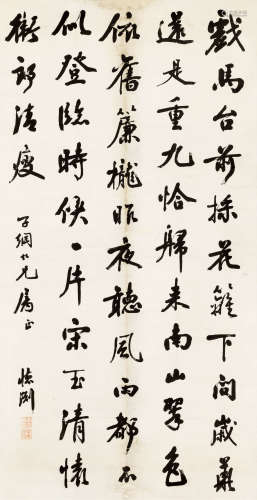 戲馬台前採花籬下問歲華
還是重九恰歸來南山翠色
依舊簾櫳昨夜聽風雨都不
似登臨時候一片宋玉清懷
衛郎清瘦
子綱仁兄屬正